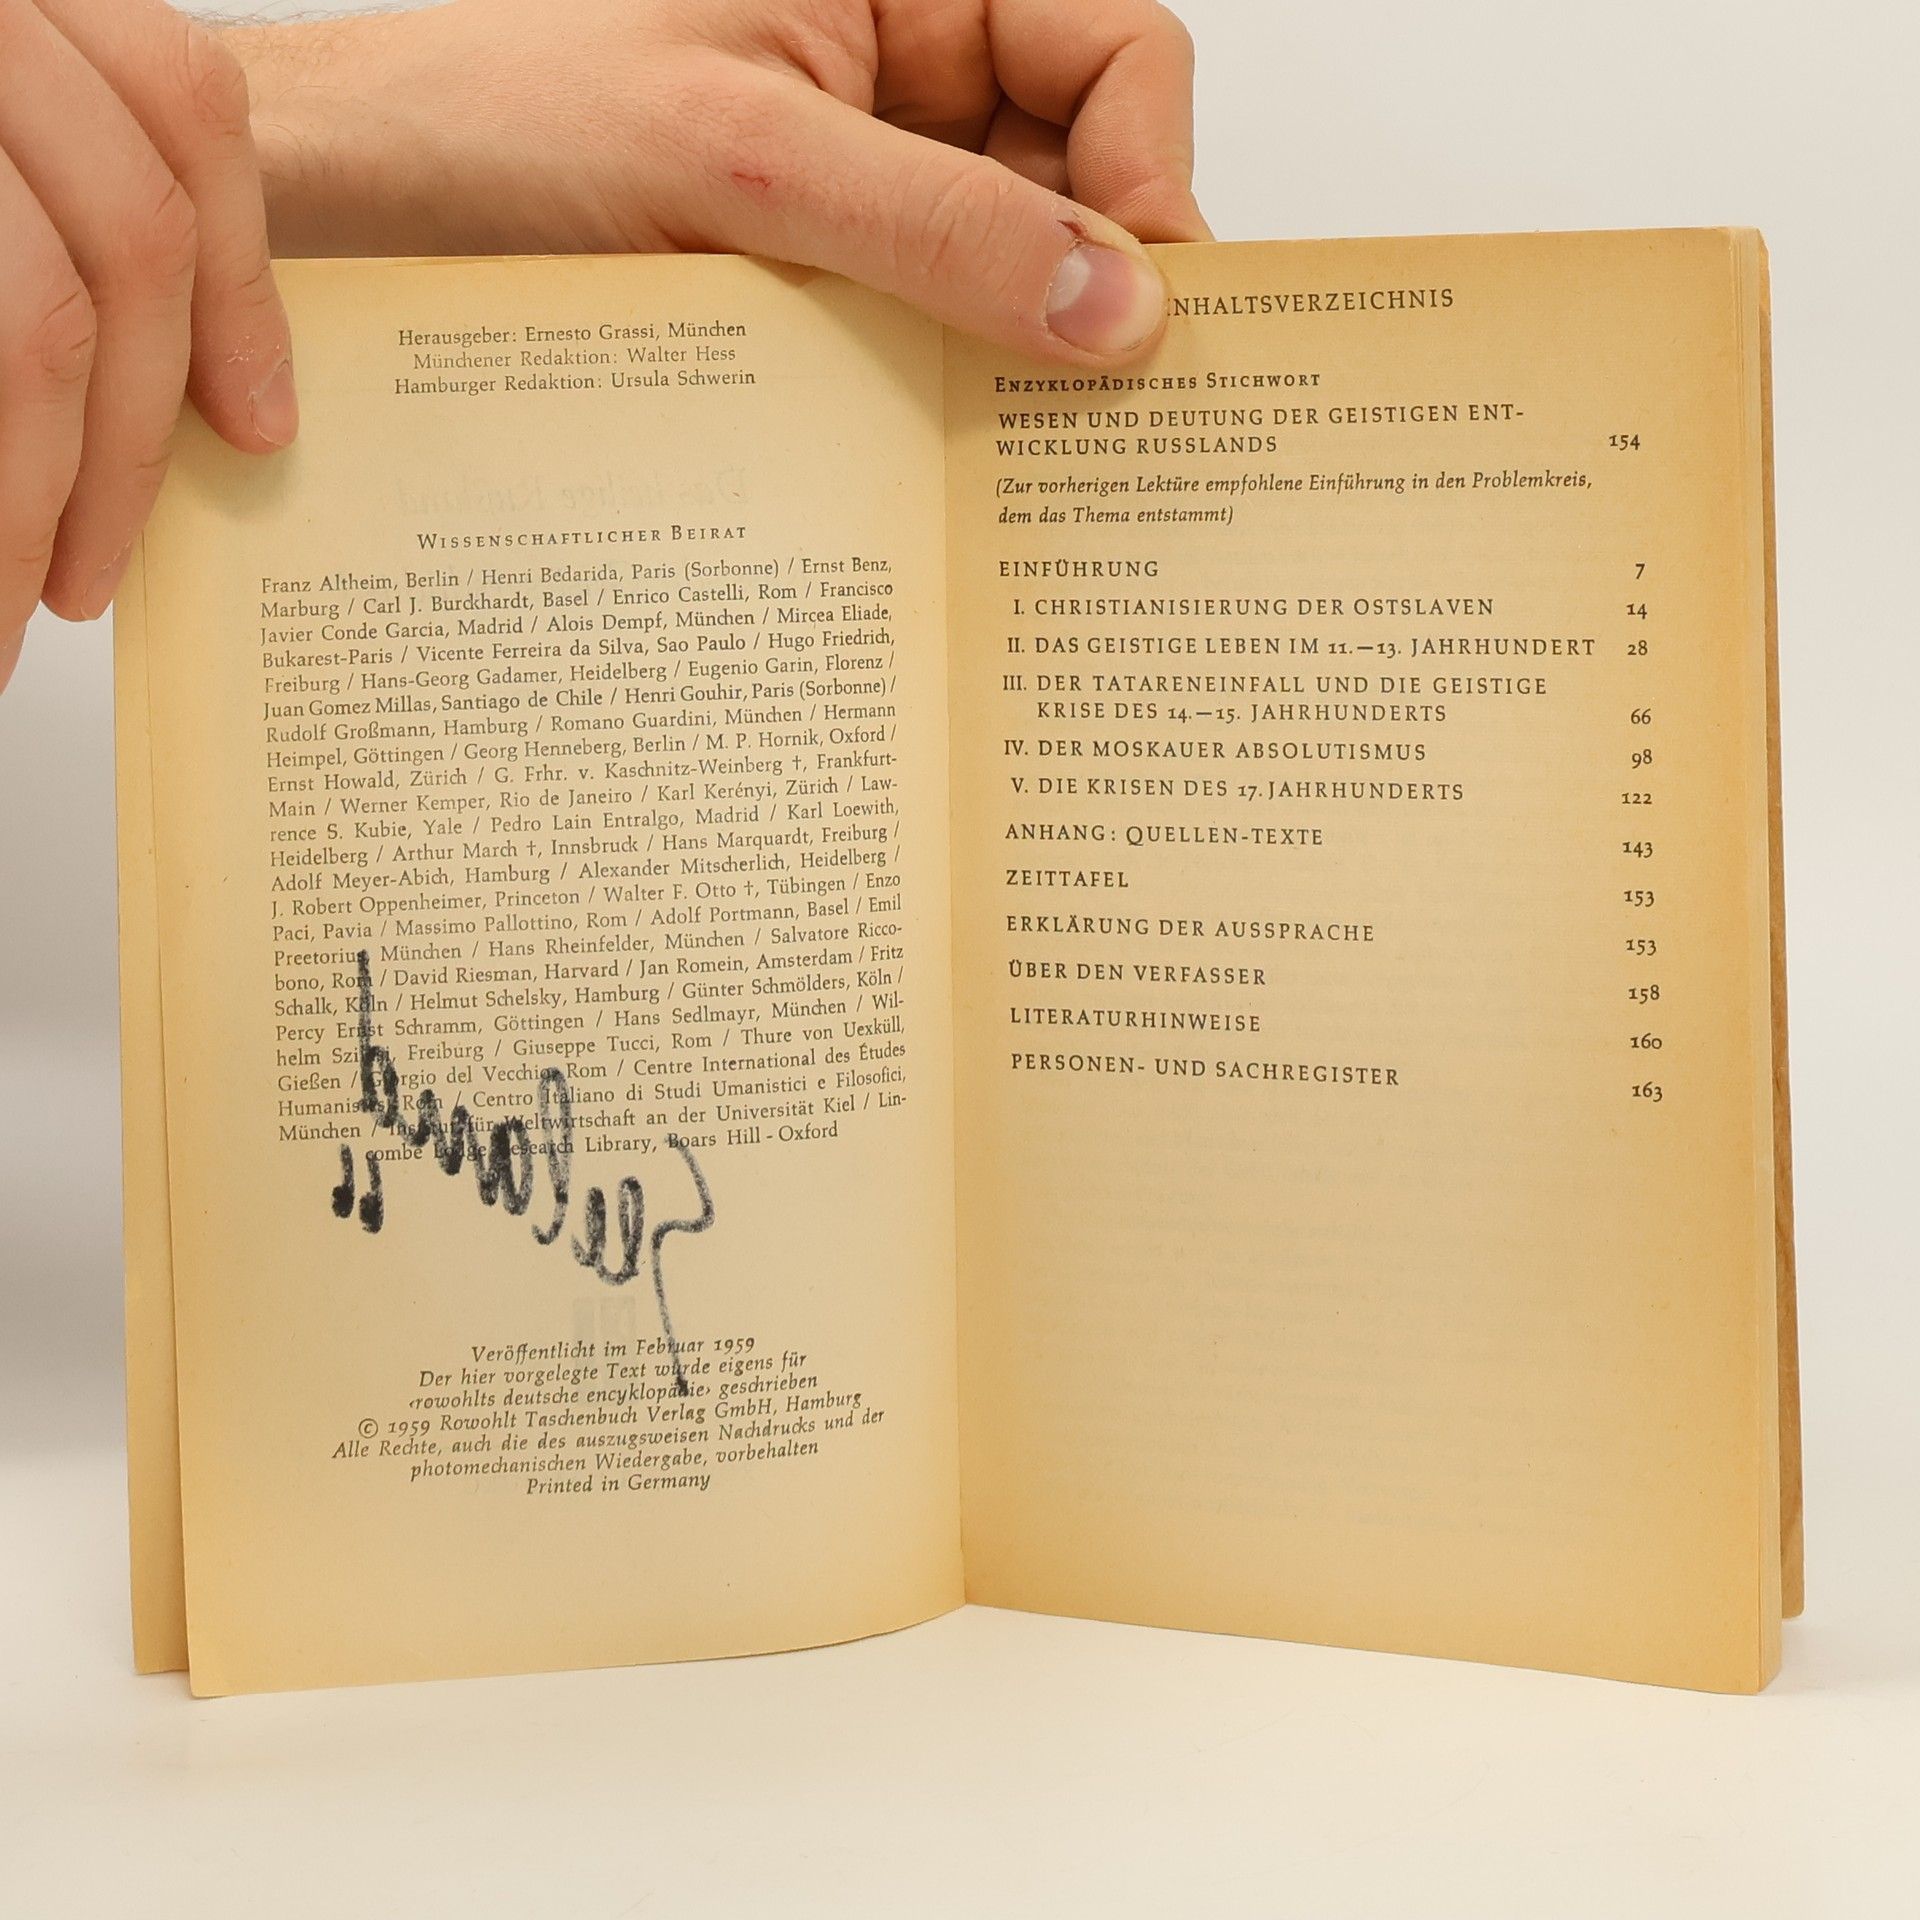 Herausgeber: Ernesto Grassi, München
Münchener Redaktion: Walter Hess
Hamburger Redaktion: Ursula Schwerin
WISSENSCHAFTLICHER BEIRAT
Franz Altheim, Berlin / Henri Bedarida, Paris (Sorbonne) / Ernst Benz,
Marburg / Carl J. Burckhardt, Basel / Enrico Castelli, Rom / Francisco
Javier Conde Garcia, Madrid / Alois Dempf, München / Mircea Eliade,
Bukarest-Paris / Vicente Ferreira da Silva, Sao Paulo / Hugo Friedrich,
Freiburg / Hans-Georg Gadamer, Heidelberg / Eugenio Garin, Florenz /
Juan Gomez Millas, Santiago de Chile / Henri Gouhir, Paris (Sorbonne) /
Rudolf Großmann, Hamburg / Romano Guardini, München / Hermann
Heimpel, Göttingen / Georg Henneberg, Berlin / M. P. Hornik, Oxford /
Ernst Howald, Zürich / G. Frhr. v. Kaschnitz-Weinberg †, Frankfurt-
Main / Werner Kemper, Rio de Janeiro / Karl Kerényi, Zürich / Law-
rence S. Kubie, Yale / Pedro Lain Entralgo, Madrid / Karl Loewith,
Heidelberg / Arthur March †, Innsbruck / Hans Marquardt, Freiburg /
Adolf Meyer-Abich, Hamburg / Alexander Mitscherlich, Heidelberg /
J. Robert Oppenheimer, Princeton / Walter F. Otto †, Tübingen / Enzo
Paci, Pavia / Massimo Pallottino, Rom / Adolf Portmann, Basel / Emil
Preetorius, München / Hans Rheinfelder, München / Salvatore Ricco-
bono, Rom / David Riesman, Harvard / Jan Romein, Amsterdam / Fritz
Schalk, Köln / Helmut Schelsky, Hamburg / Günter Schmölders, Köln /
Percy Ernst Schramm, Göttingen / Hans Sedlmayr, München / Wil-
helm Szilasi, Freiburg / Giuseppe Tucci, Rom / Thure von Uexküll,
Gießen / Giorgio del Vecchio, Rom / Centre International des Études
Humanistes, Rom / Centro Italiano di Studi Umanistici e Filosofici,
München / Institut für Weltwirtschaft an der Universität Kiel / Lin-
combe Lodge Research Library, Boars Hill - Oxford
Veröffentlicht im Februar 1959
Der hier vorgelegte Text wurde eigens für
‹rowohlts deutsche encyklopädie› geschrieben
© 1959 Rowohlt Taschenbuch Verlag GmbH, Hamburg
Alle Rechte, auch die des auszugsweisen Nachdrucks und der
photomechanischen Wiedergabe, vorbehalten
Printed in Germany
INHALTSVERZEICHNIS
ENZYKLOPÄDISCHES STICHWORT
WESEN UND DEUTUNG DER GEISTIGEN ENT-
WICKLUNG RUSSLANDS 154
(Zur vorherigen Lektüre empfohlene Einführung in den Problemkreis,
dem das Thema entstammt)
EINFÜHRUNG 7
I. CHRISTIANISIERUNG DER OSTSLAVEN 14
II. DAS GEISTIGE LEBEN IM 11.—13. JAHRHUNDERT 28
III. DER TATARENEINFALL UND DIE GEISTIGE
KRISE DES 14.—15. JAHRHUNDERTS 66
IV. DER MOSKAUER ABSOLUTISMUS 98
V. DIE KRISEN DES 17. JAHRHUNDERTS 122
ANHANG: QUELLEN-TEXTE 143
ZEITTAFEL 153
ERKLÄRUNG DER AUSSPRACHE 153
ÜBER DEN VERFASSER 158
LITERATURHINWEISE 160
PERSONEN- UND SACHREGISTER 163